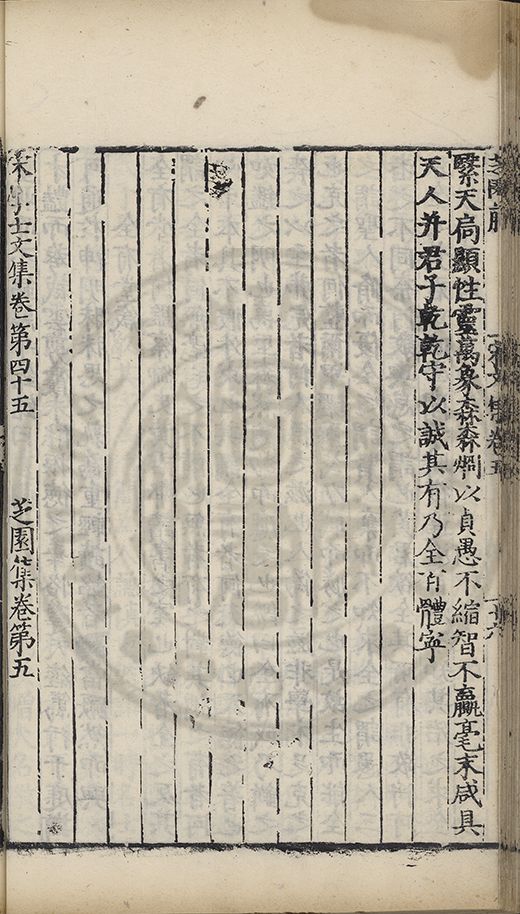 繄天扃顯性靈萬象森森炯以貞愚不縮智不贏毫末咸具
天人并君子乾乾守以誠其有乃全百體寧
宋學士文集卷第四十五 芝園集卷第五